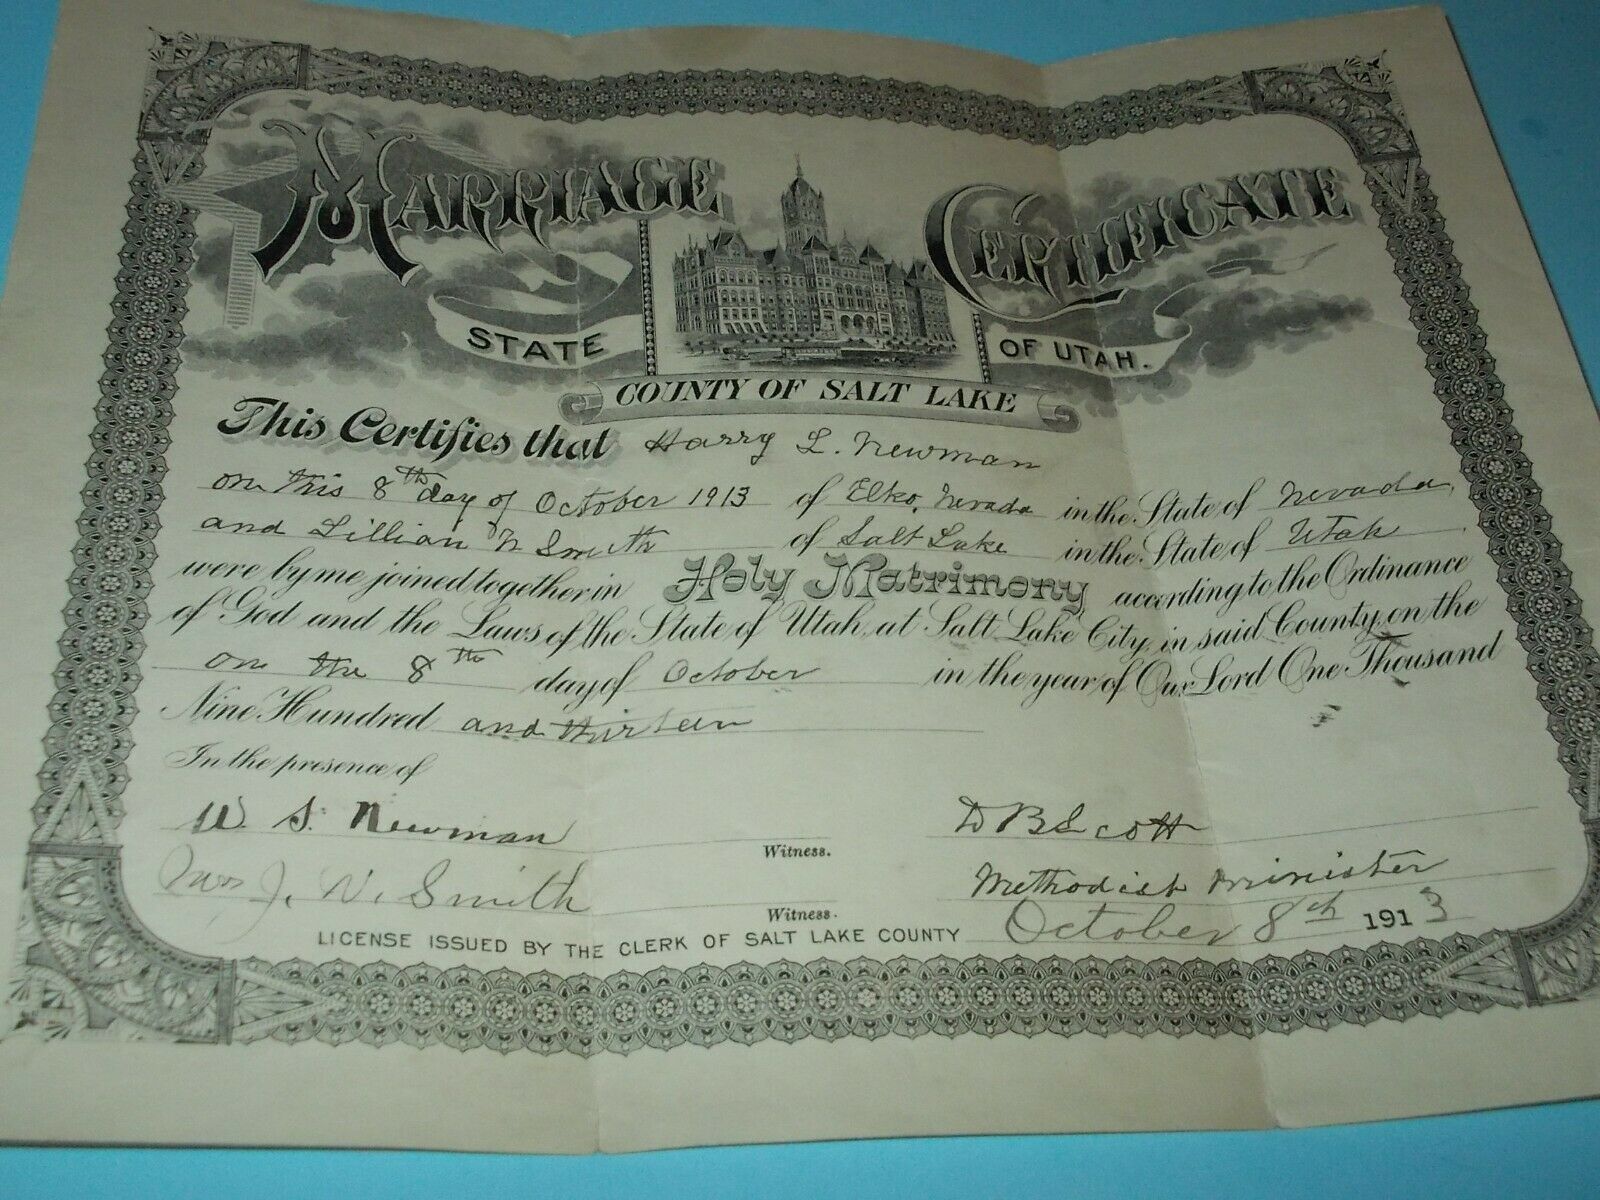 MARRIAGE CERTIFICATE
STATE OF UTAH.
COUNTY OF SALT LAKE
This Certifies that Harry L. Newman
on this 8th day of October 1913 of Elko, Nevada in the State of Nevada,
and Lillian N Smith of Salt Lake in the State of Utah.
were by me joined together in Holy Matrimony according to the Ordinance
of God and the Laws of the State of Utah, at Salt Lake City, in said County, on the
on the 8th day of October in the year of Our Lord One Thousand
Nine Hundred and thirteen
In the presence of
W. S. Newman Witness. D B Scott
Mrs J. N. Smith Witness. Methodist Minister
LICENSE ISSUED BY THE CLERK OF SALT LAKE COUNTY October 8th 1913